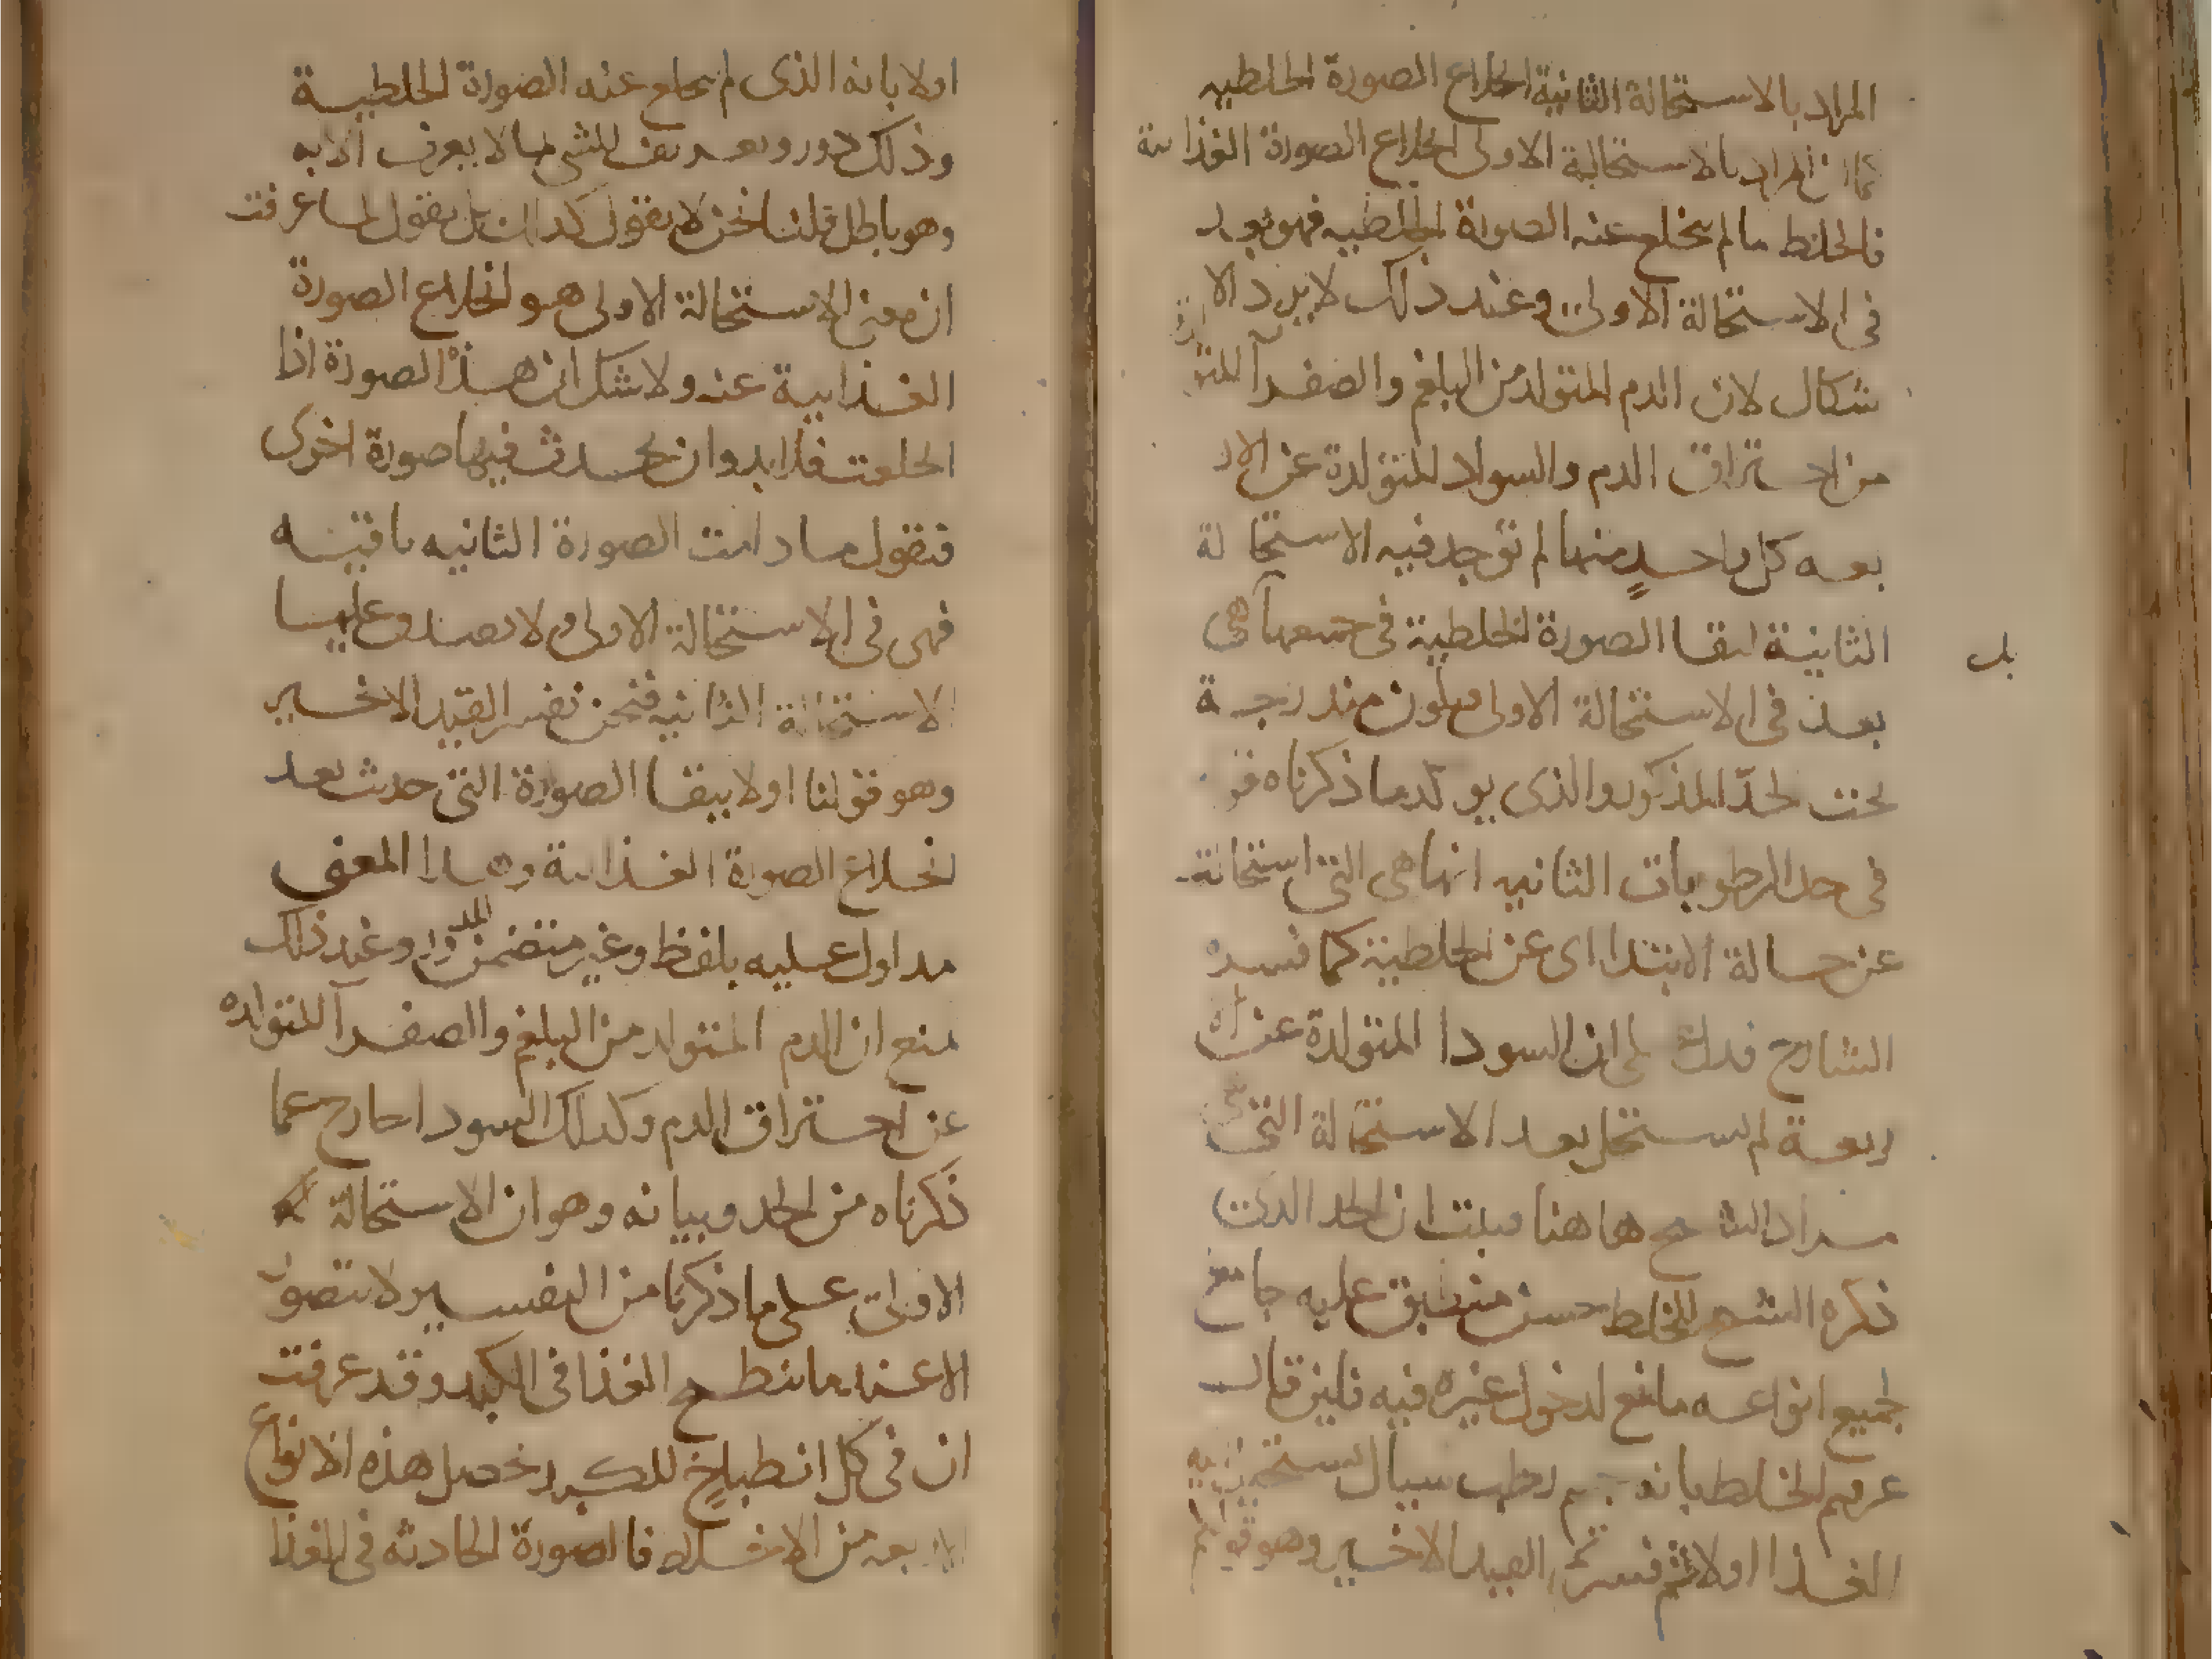 المراد بالاستحالة الثانية انخلاع الصورة الخلطيه
كما ان المراد بالاستحالة الاولى انخلاع الصورة الغذائية
فالخلط ما لم ينخلع عنه الصورة الخلطيه فهو بعد
في الاستحالة الاولى وعند ذلك لا يرد الا
شكال لان الدم المتولد من البلغم والصفرآ المتو
من احتراق الدم والسواد المتولدة عن الار
بعه كل واحدٍ منها لم توجد فيه الاستحا لة
الثانية لبقا الصورة الخلطية في جميعها هى
بل
بعد في الاستحالة الاولى فيكون مندرجة
تحت الحدّ المذكور والذى يوكد ما ذكرناه قو
في حد الرطوبات الثانيه انها هى التى استحالت
عن حالة الابتدا اى عن الخلطية كما فسره
الشارح فدل على ان السودا المتولدة عن الا
ربعة لم يستحل بعد الاستحالة التى
مراد الشيخ ها هنا فثبت ان الحد الذى
ذكره الشيخ للخلط حسن منطبق عليه جامع
لجميع انواعه مانع لدخول غيره فيه فلين قال
عرفتم الخلط بانه جسم رطب سيال يستحيل اليه
الغذا اولا ثم فسرتم القيد الاخير وهو قولكم
اولا بانه الذى لم ينخلع عنه الصورة الخلطية
وذلك دور وتعريف للشى بما لا يعرف الا به
وهو باطل قلنا نحن لا نقول كذلك بل نقول لما عرفت
ان معنى الاستحالة الاولى هو انخلاع الصورة
الغذايية عنه ولا شك ان هذه الصورة اذا
انخلعت فلا بد وان يحدث فيها صورة اخرى
فنقول ما دامت الصورة الثانيه باقيه
فهى في الاستحالة الاولى ولا يصدق عليها
الاستحالة الثانيه فنحن نفسر القيد الاخير
وهو قولنا اولا ببقا الصورة التى حدث بعد
انخلاع الصورة الغذاية وهذا المعنى
مدلول عليه بلفظ وغير متضمن للدور وعند ذلك
منع ان الدم المتولد من البلغم والصفرآ المتولده
عن احتراق الدم وكذلك السودا خارج عما
ذكرناه من الحد وبيانه وهو ان الاستحالة
الاولى على ما ذكرنا من التفسير لا تتصور
الا عند ما ينطبخ الغذا في الكبد وقد عرفت
ان في كل انطباخٍ للكبد تحصل هذه الانواع
الاربعه من الاخلاط فالصورة الحادثه في الغذا